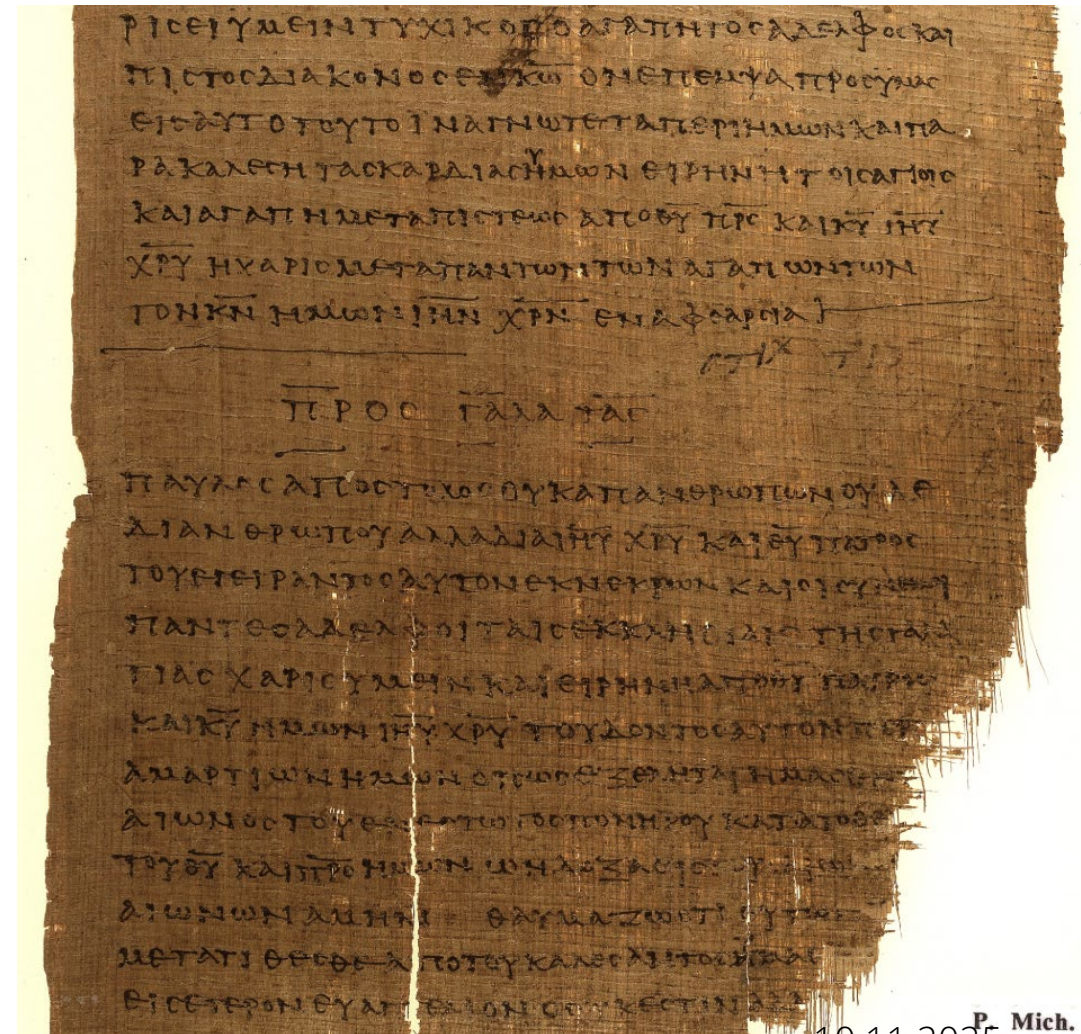 ΡΙΣΕΙ ΥΜΕΙΝ ΤΥΧΙΚΟΣ Ο ΑΓΑΠΗΤΟΣ ΑΔΕΛΦΟΣ ΚΑΙ
ΠΙΣΤΟΣ ΔΙΑΚΟΝΟΣ ΕΝ ΚΩ̅ ΟΝ ΕΠΕΜΨΑ ΠΡΟΣ ΥΜΑΣ
ΕΙΣ ΑΥΤΟ ΤΟΥΤΟ ΙΝΑ ΓΝΩΤΕ ΤΑ ΠΕΡΙ ΗΜΩΝ ΚΑΙ ΠΑ
ΡΑΚΑΛΕΣΗ ΤΑΣ ΚΑΡΔΙΑΣ ΗΜΩΝ ΕΙΡΗΝΗ ΤΟΙΣ ΑΓΙΟΙΣ
ΚΑΙ ΑΓΑΠΗ ΜΕΤΑ ΠΙΣΤΕΩΣ ΑΠΟ Θ̅Υ̅ Π̅Ρ̅Σ̅ ΚΑΙ Κ̅Υ̅ Ι̅Η̅Υ̅
Χ̅Ρ̅Υ̅ Η ΧΑΡΙΣ ΜΕΤΑ ΠΑΝΤΩΝ ΤΩΝ ΑΓΑΠΩΝΤΩΝ
ΤΟΝ Κ̅Ν̅ ΗΜΩΝ Ι̅Η̅Ν̅ Χ̅Ρ̅Ν̅ ΕΝ ΑΦΘΑΡΣΙΑ
ΣΤΙΧ
ΠΡΟΣ ΓΑΛΑΤΑΣ
ΠΑΥΛΟΣ ΑΠΟΣΤΟΛΟΣ ΟΥΚ ΑΠ ΑΝΘΡΩΠΩΝ ΟΥΔΕ
ΔΙ ΑΝΘΡΩΠΟΥ ΑΛΛΑ ΔΙΑ Ι̅Η̅Υ̅ Χ̅Ρ̅Υ̅ ΚΑΙ Θ̅Υ̅ ΠΑΤΡΟΣ
ΤΟΥ ΕΓΕΙΡΑΝΤΟΣ ΑΥΤΟΝ ΕΚ ΝΕΚΡΩΝ ΚΑΙ ΟΙ ΣΥΝ
ΠΑΝΤΕΣ ΑΔΕΛΦΟΙ ΤΑΙΣ ΕΚΚΛΗΣΙΑΙΣ ΤΗΣ ΓΑΛΑ
ΤΙΑΣ ΧΑΡΙΣ ΥΜΕΙΝ ΚΑΙ ΕΙΡΗΝΗ ΑΠΟ Θ̅Υ̅
ΚΑΙ Κ̅Υ̅ ΗΜΩΝ Ι̅Η̅Υ̅ Χ̅Ρ̅Υ̅ ΤΟΥ ΔΟΝΤΟΣ ΑΥΤΟΝ ΠΕΡΙ
ΑΜΑΡΤΙΩΝ ΗΜΩΝ ΟΠΩΣ ΕΞΕΛΗΤΑΙ ΗΜΑΣ
ΑΙΩΝΟΣ ΤΟΥ ΕΝΕΣΤΩΤΟΣ ΠΟΝΗΡΟΥ ΚΑΤΑ ΤΟ ΘΕ
ΤΟΥ Θ̅Υ̅ ΚΑΙ Π̅Ρ̅Ο̅ ΗΜΩΝ
ΑΙΩΝΩΝ ΑΜΗΝ ΘΑΥΜΑΖΩ ΟΤΙ
ΜΕΤΑΤΙΘΕΣΘΕ ΑΠΟ ΤΟΥ ΚΑΛΕΣΑΝΤΟΣ
ΕΙΣ ΕΤΕΡΟΝ ΕΥΑΓΓΕΛΙΟΝ Ο ΟΥΚ ΕΣΤΙΝ ΑΛΛ
P. Mich
10.11.2025